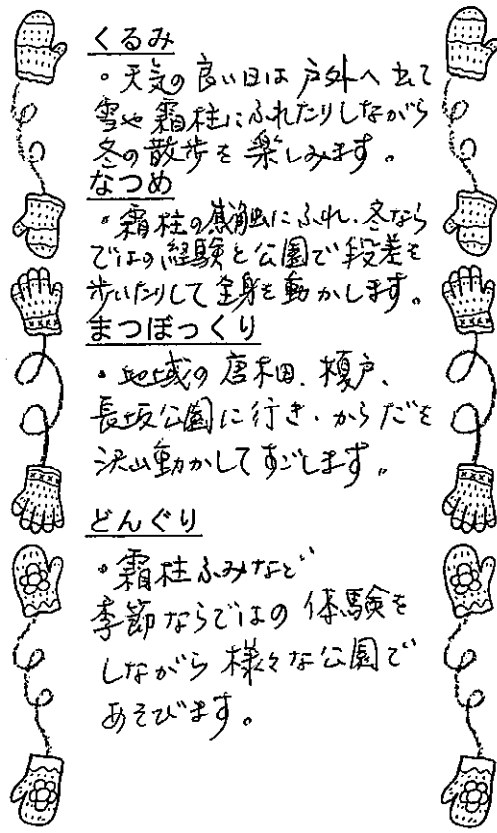 くるみ
・天気の良い日は戸外へ出て
雪や霜柱にふれたりしながら
冬の散歩を楽しみます。
なつめ
・霜柱の感触にふれ、冬なら
ではの経験と公園で段差を
歩いたりして全身を動かします。
まつぼっくり
・地域の唐木田、榎戸、
長坂公園に行き、からだを
沢山動かしてすごします。
どんぐり
・霜柱ふみなど
季節ならではの体験を
しながら様々な公園で
あそびます。